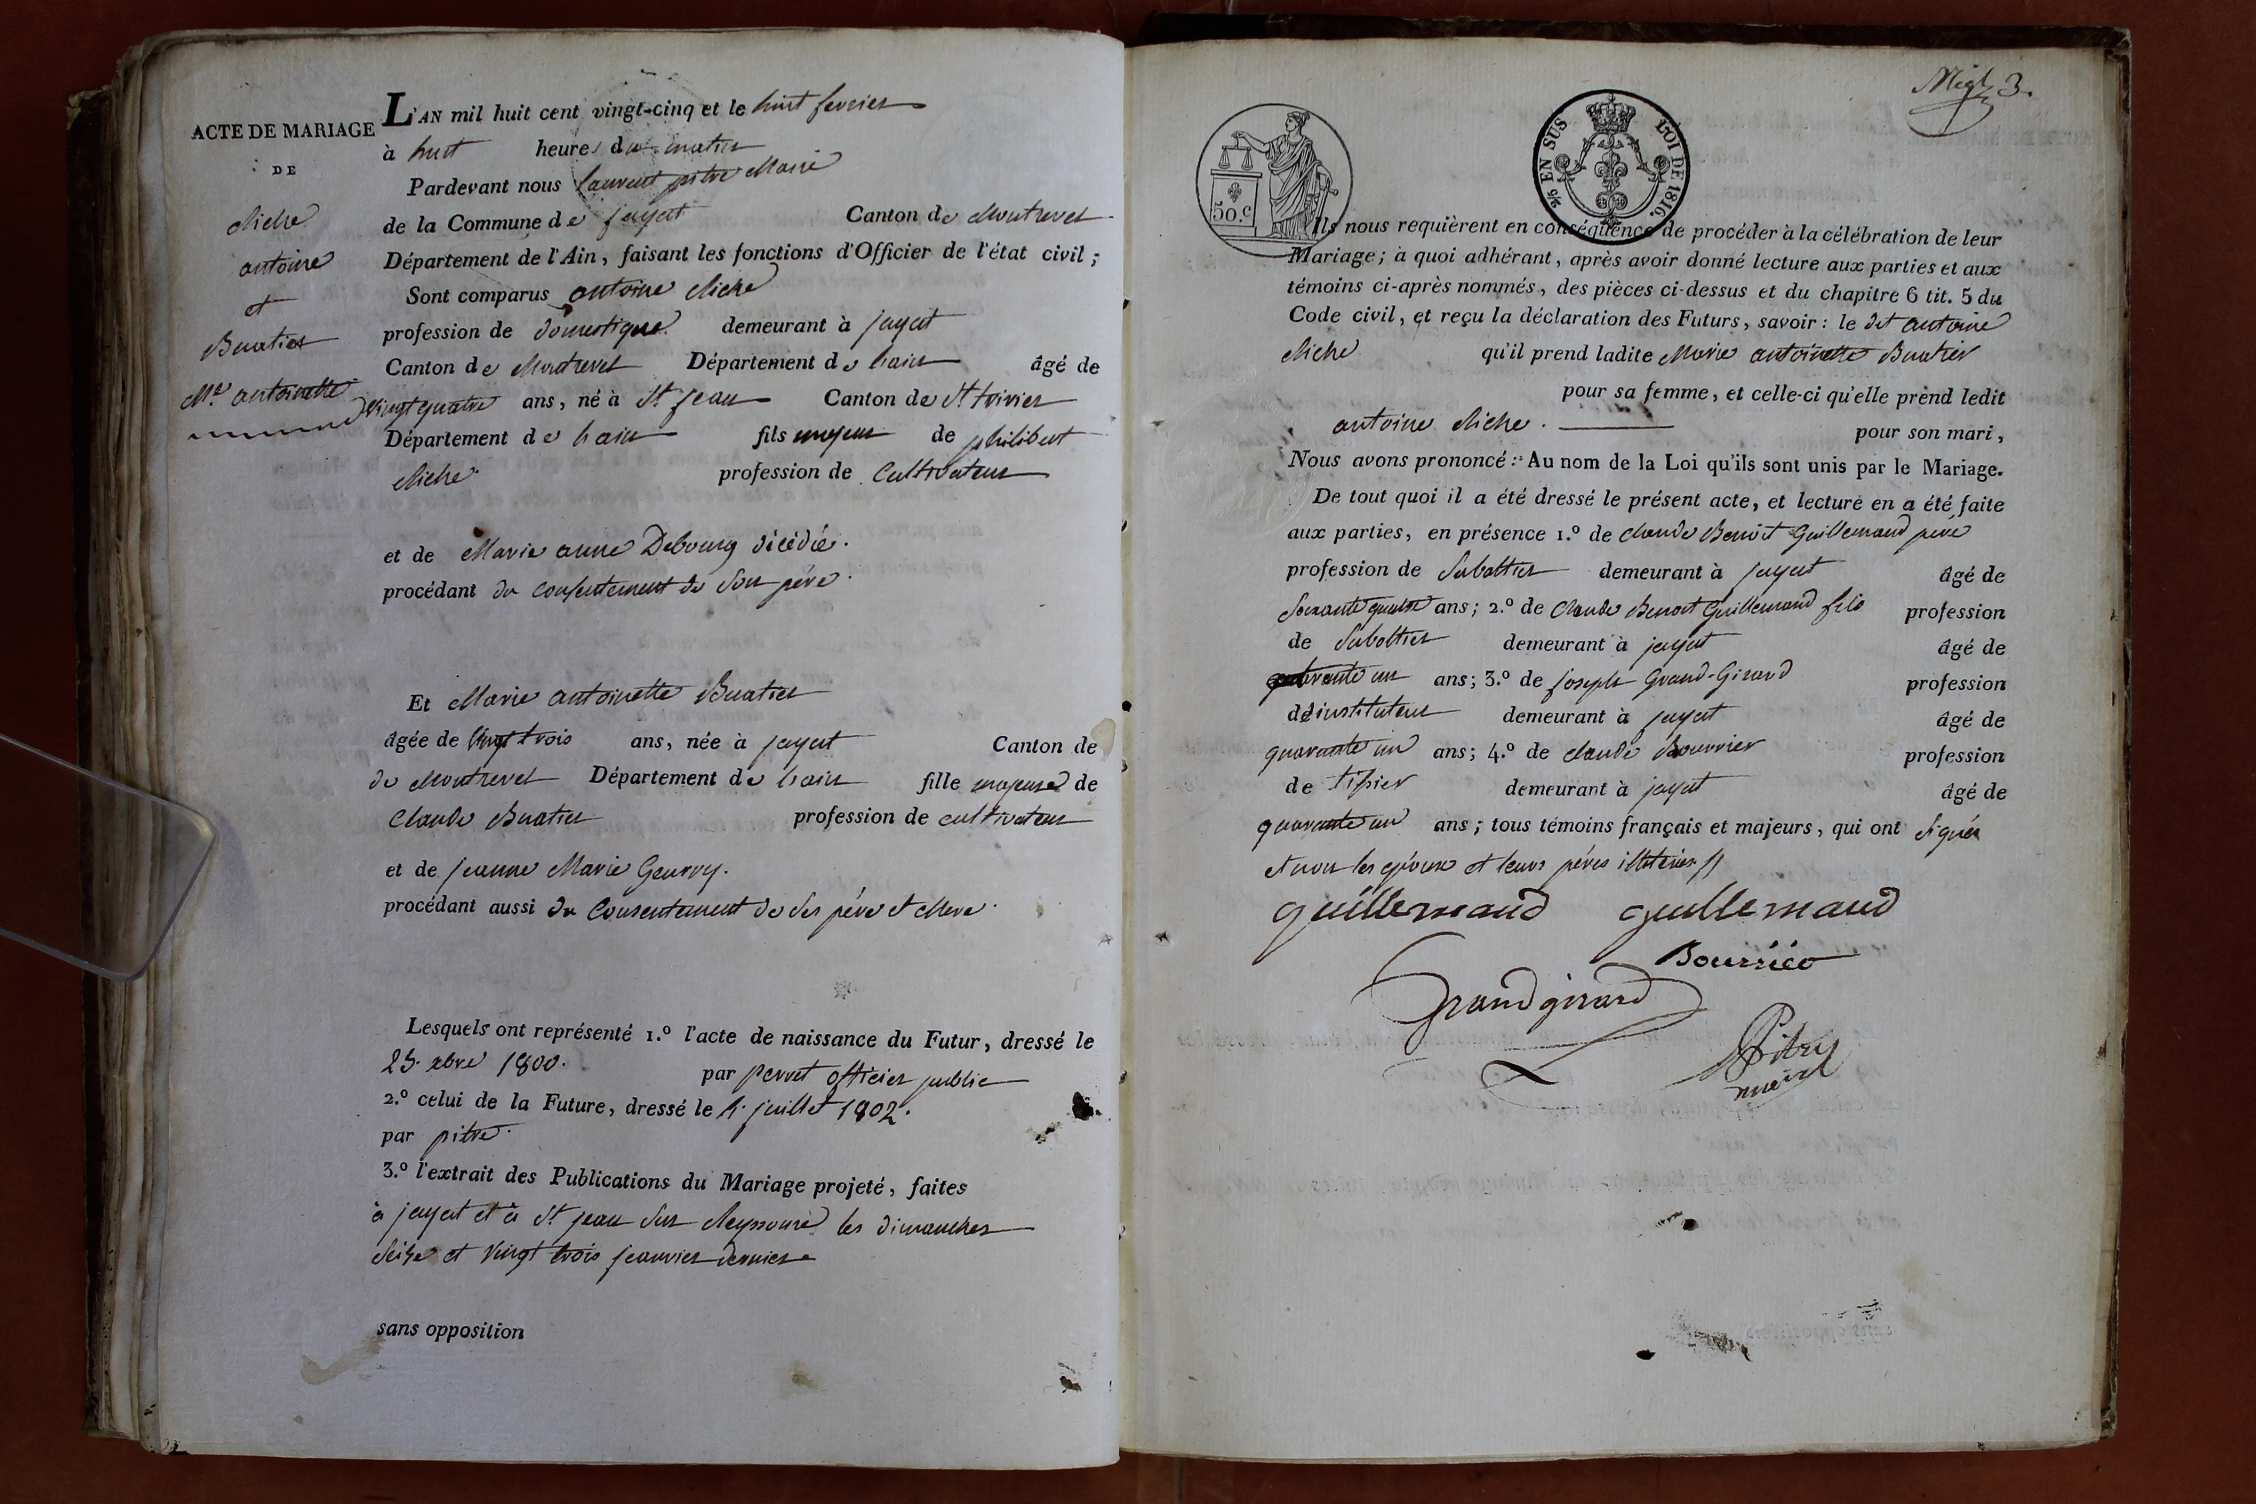 L'AN mil huit cent vingt-cinq et le huit fevrier
ACTE DE MARIAGE
à huit heures du matin
DE
Pardevant nous Laurent pitre Maire
Miche
de la Commune de jayat Canton de Montrevel
antoine
Département de l'Ain, faisant les fonctions d'Officier de l'état civil ;
et
Sont comparus antoine Miche
Buatier
profession de domestique demeurant à jayat
Canton de Montrevel Département de lain âgé de
Mie antoinette
vingt quatre ans, né à St jean Canton de St trivier
Département de lain fils majeur de philibert
Miche profession de Cultivateur
et de Marie anne Debourg décédée.
procédant du consentement de son père.
Et Marie antoinette Buatier
âgée de vingt trois ans, née à jayat Canton de
de Montrevel Département de lain fille majeure de
Claude Buatier profession de cultivateur
et de jeanne Marie Geurry.
procédant aussi du Consentement de ses père et Mere.
Lesquels ont représenté 1.º l'acte de naissance du Futur, dressé le
25. xbre 1800. par pervet officier public
2.º celui de la Future, dressé le 4. juillet 1802.
par pitre.
3.º l'extrait des Publications du Mariage projeté, faites
à jayat et à St jean sur Reyssouze les dimanches
seize et vingt trois jeanvier dernier
sans opposition
3.
50.c
2/5 EN SUS LOI DE 1816.
Ils nous requièrent en conséquence de procéder à la célébration de leur
Mariage ; à quoi adhérant, après avoir donné lecture aux parties et aux
témoins ci-après nommés, des pièces ci-dessus et du chapitre 6 tit. 5 du
Code civil, et reçu la déclaration des Futurs, savoir : le dit antoine
Miche qu'il prend ladite Marie antoinette Buatier
pour sa femme, et celle-ci qu'elle prend ledit
antoine Miche. pour son mari,
Nous avons prononcé : Au nom de la Loi qu'ils sont unis par le Mariage.
De tout quoi il a été dressé le présent acte, et lecture en a été faite
aux parties, en présence 1.º de claude Benoit Guillemaud père
profession de Sabottier demeurant à jayat âgé de
soixante quatre ans ; 2.º de Claude Benoit Guillemaud fils profession
de Sabottier demeurant à jayat âgé de
quarante un ans ; 3.º de joseph Grand-Girard profession
de instituteur demeurant à jayat âgé de
quarante un ans ; 4.º de claude Bourrier profession
de tissier demeurant à jayat âgé de
quarante un ans ; tous témoins français et majeurs, qui ont signés
et non les époux et leurs pères illiterés
guillemaud guillemaud
Bourrier
Grandgirard
Pitre
maire